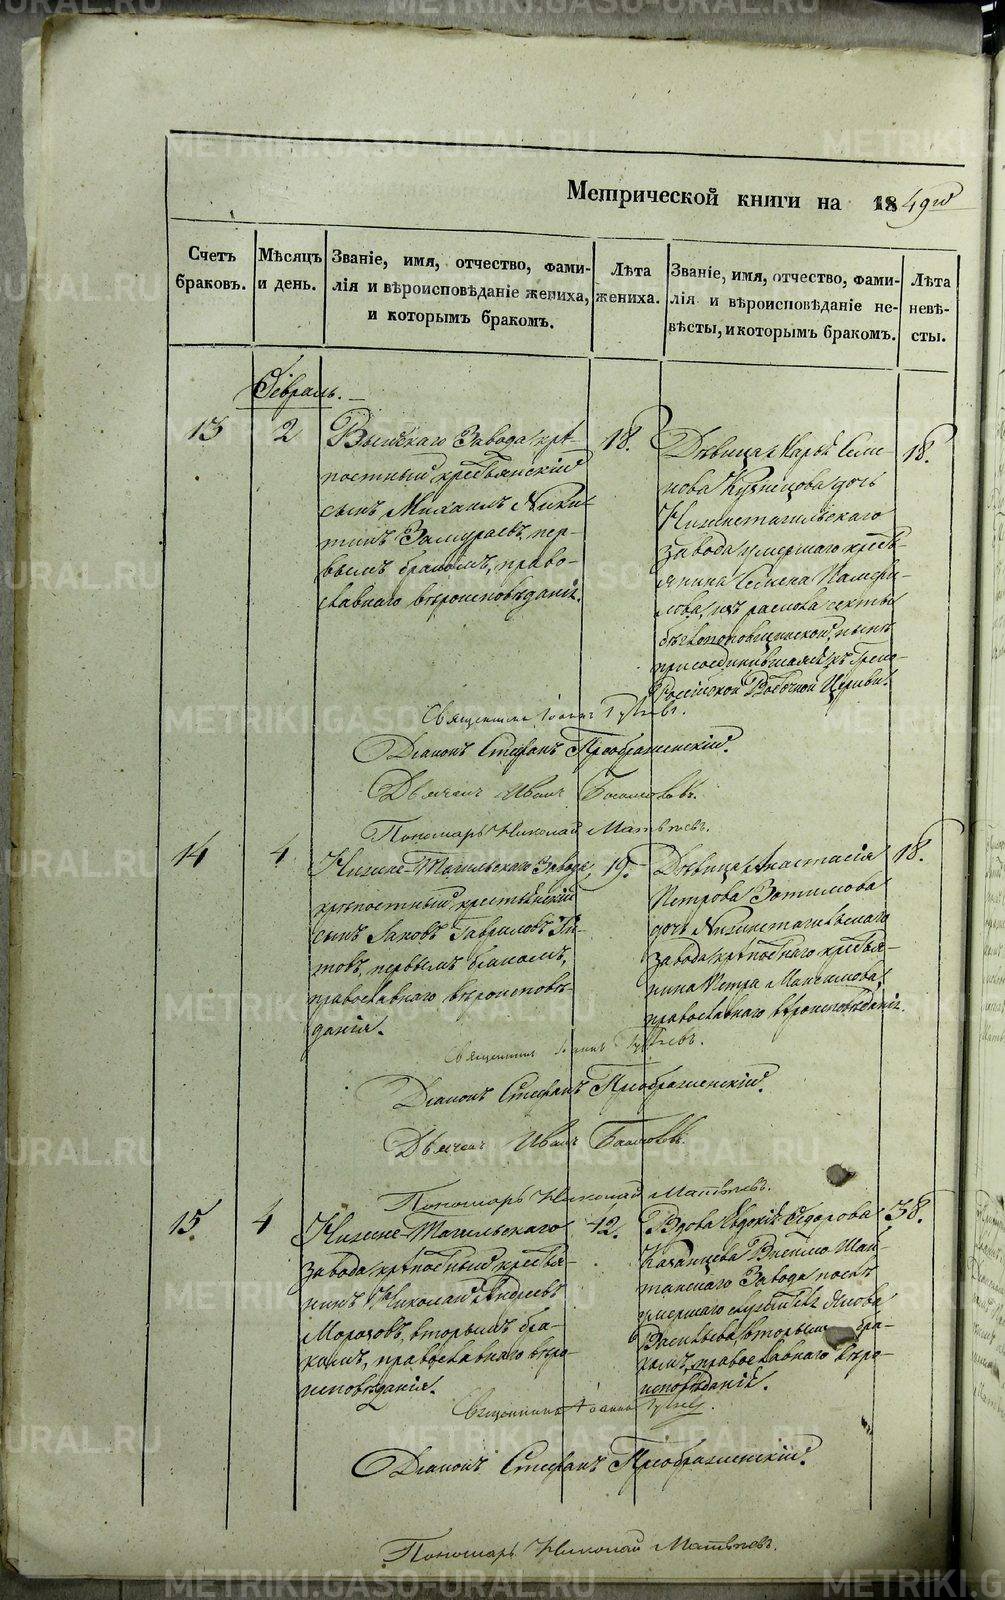 METRIKI.GASO-URAL.RU
Метрической книги на 1849й
Счетъ браковъ.
Мѣсяцъ и день.
Званіе, имя, отчество, фами-
лія и вѣроисповѣданіе жениха,
и которымъ бракомъ.
Лѣта
жениха.
Званіе, имя, отчество, фами-
лія и вѣроисповѣданіе не-
вѣсты, и которымъ бракомъ.
Лѣта
невѣ-
сты.
Февраль.
13
2
Выйскаго Завода крѣ-
постный крестьянскій
сынъ Михаилъ Ники-
тинъ Замураевъ, пер-
вымъ бракомъ, право-
славнаго вѣроисповѣданія.
18.
Дѣвица Марья Семе-
нова Кузнецова дочь
Нижнетагильскаго
завода умершаго кресть-
янина Семена Памфи-
лова, изъ раскола секты
безпоповщинской, нынѣ
присоединившаяся къ Греко-
Россійской Восточной Церкви.
18.
Священникъ Іоаннъ
Діаконъ Стефанъ Преображенскій.
Дьячекъ Иванъ
Пономарь Николай Матвѣевъ.
14
4
Нижне-Тагильскаго Завода
крѣпостный крестьянскій
сынъ Іаковъ Гавриловъ Ти-
товъ, первымъ бракомъ,
православнаго вѣроисповѣ-
данія.
19.
Дѣвица Анастасія
Петрова Зотимова
дочь Нижнетагильскаго
завода крѣпостнаго крестья-
нина Петра Максимова,
православнаго вѣроисповѣданія.
18.
Священникъ Іоаннъ
Діаконъ Стефанъ Преображенскій.
Дьячекъ Иванъ
Пономарь Николай Матвѣевъ.
15
4
Нижне-Тагильскаго
завода крѣпостный крестья-
нинъ Николай Андреевъ
Морозовъ, вторымъ бра-
комъ, православнаго вѣро-
исповѣданія.
42.
Вдова Евдокія Сидорова
Казанцева Висимо Шай-
танскаго Завода послѣ
умершаго Якова
Васильева вторымъ бра-
комъ, православнаго вѣро-
исповѣданія.
38.
Священникъ Іоаннъ
Діаконъ Стефанъ Преображенскій.
Пономарь Николай Матвѣевъ.